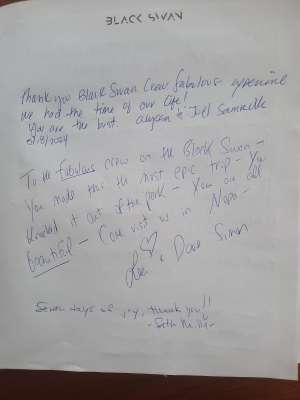 BLACK SWAN
Thank you Black Swan Crew fabulous experience
we had the time of our life!
You are the best. & Joel
To the Fabulous crew on the Black Swan -
You made this the most epic trip - You
knocked it out of the park - You are all
Beautiful - Come visit us in Napa -
& Dave Simon
Seven days of joy, thank you!!
- Seth